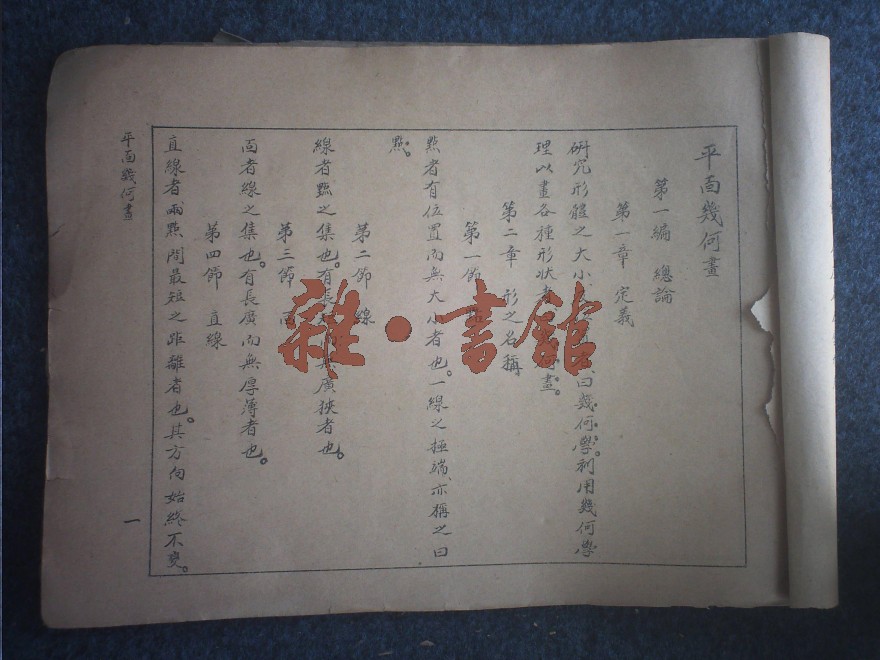 平面幾何畫
第一編 總論
第一章 定義
研究形體之大小 曰幾何學。利用幾何學
理以畫各種形狀 畫。
第二章 形之名稱
第一節
點者有位置而無大小者也。一線之極端、亦稱之曰
點。
第二節 線
線者點之集也。有長 無廣狹者也。
第三節 面
面者線之集也。有長廣而無厚薄者也。
第四節 直線
直線者兩點間最短之距離者也。其方向始終不變。
平面幾何畫
一
雜·書館